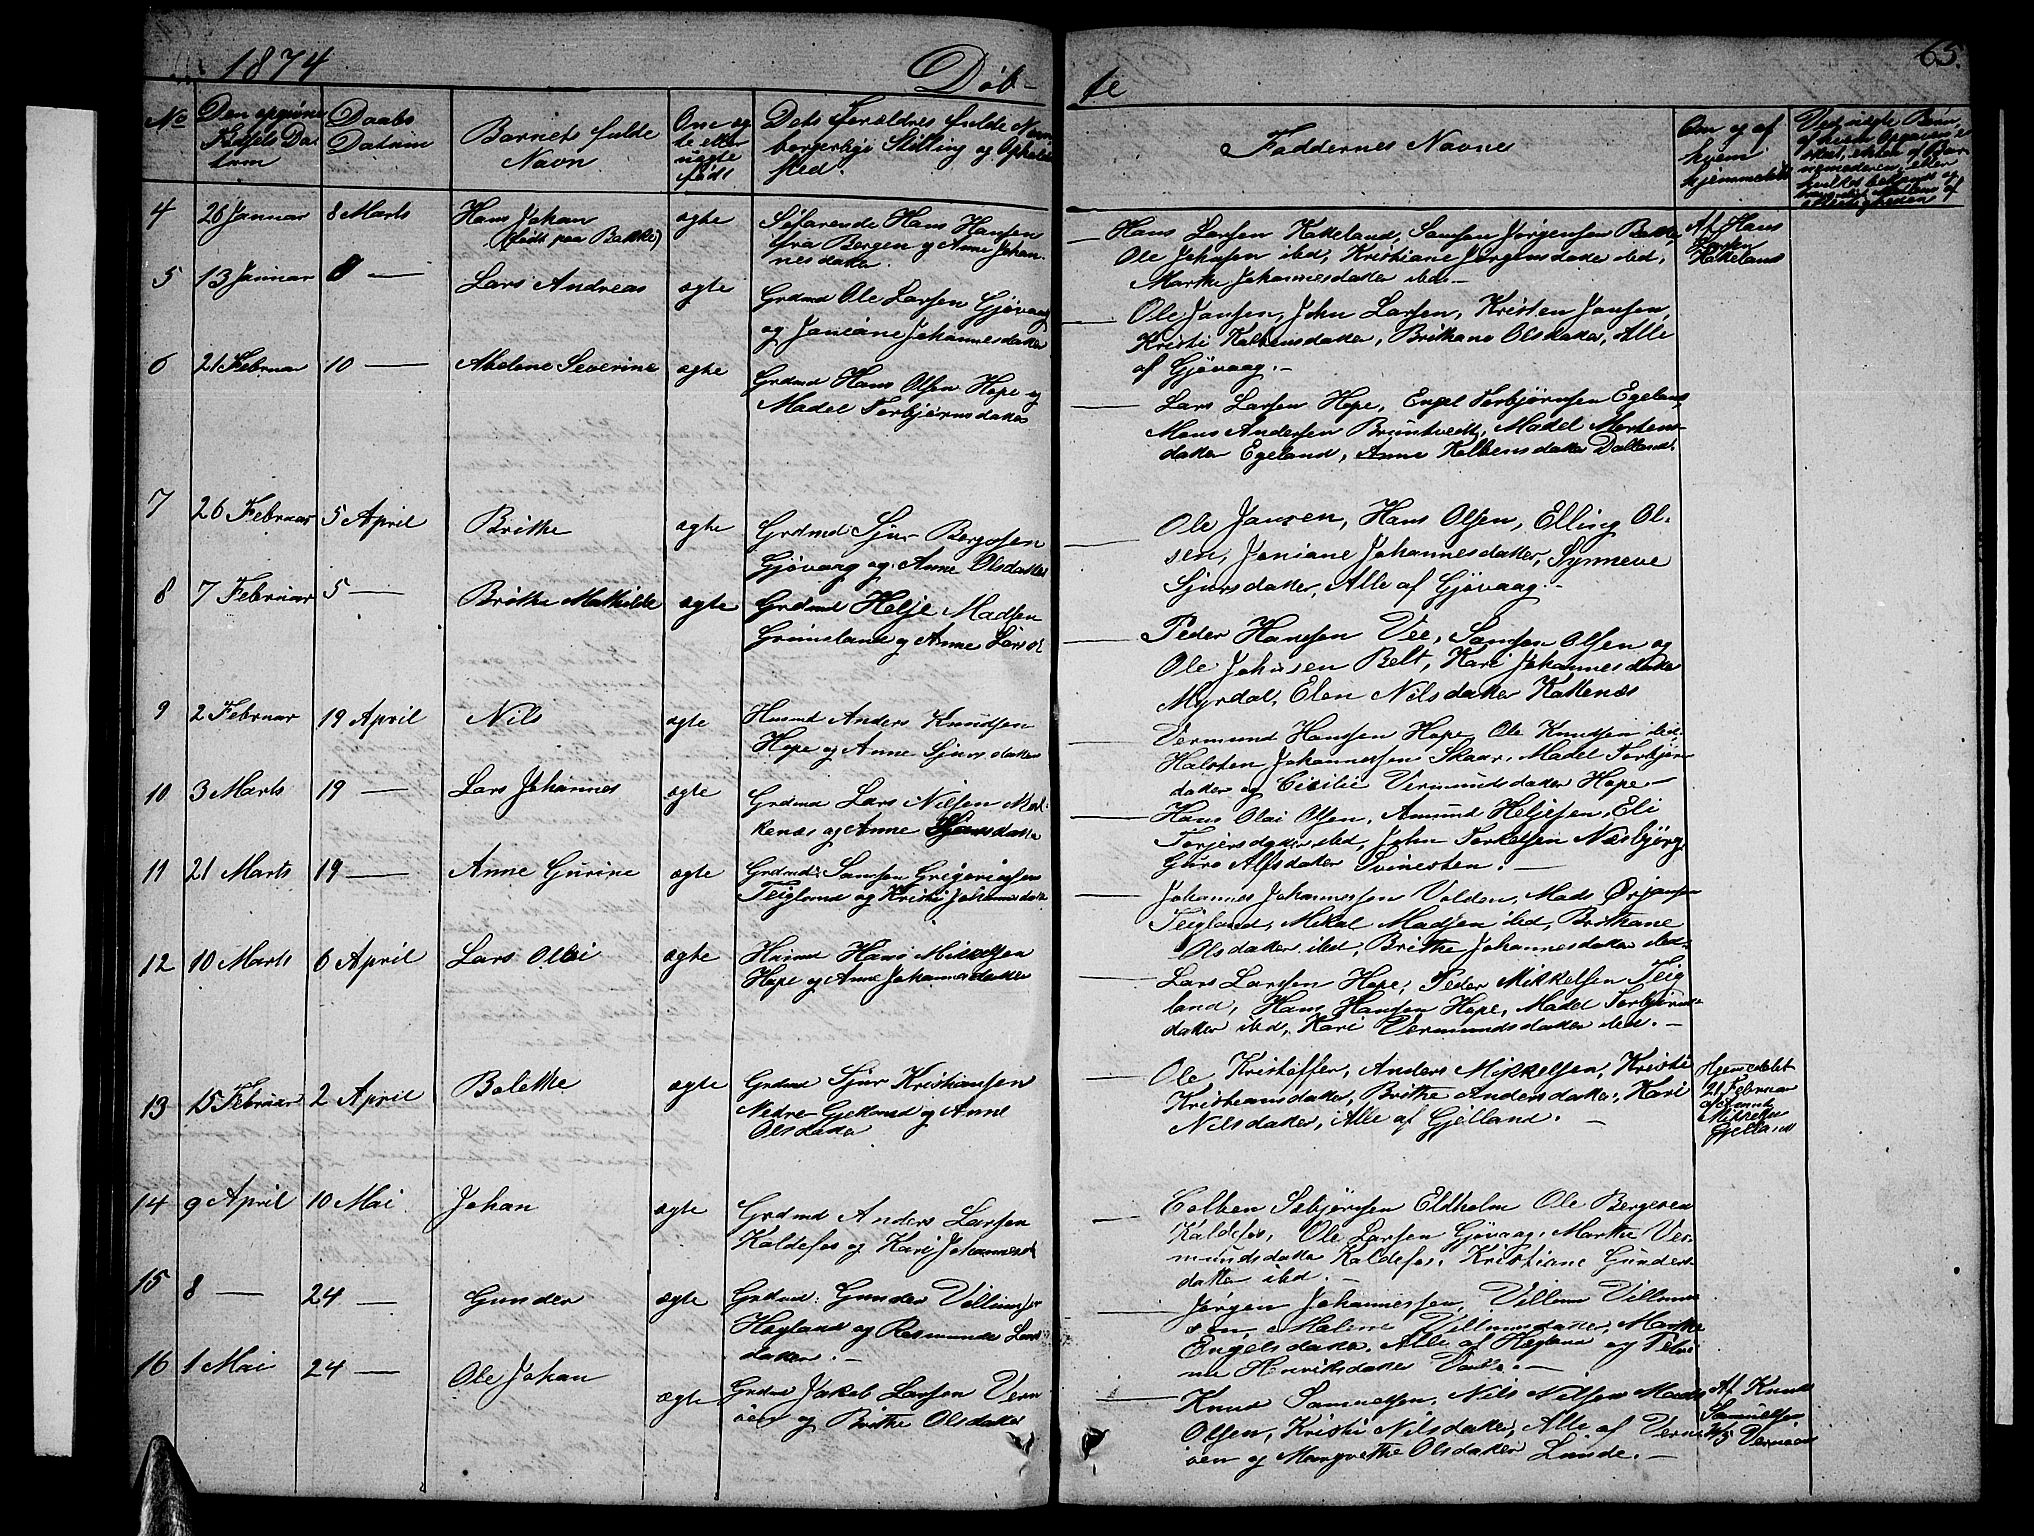 1874
Døb-
te
65.
No
Den opgivne
Fødsels Da-
tum
Daabs
Datum
Barnets fulde
Navn
Om æg-
te eller
uægte
født
Dets Forældres fulde Navn
borgerlige Stilling og Opholds
sted.
Faddernes Navne
Om og af
hvem
hjemmedøbt
4
26 Januar
8 Marts
Hans Johan
(født paa Bakke)
ægte
Søfarende Hans Hansen
fra Bergen og Anne Johan-
nesdatter.
Hans Larsen Hakeland, Samson Jørgensen Bakke,
Ole Johnsen ibd, Kristiane Jørgensdatter ibd,
Marthe Johannesdatter ibd.—
Af Hans
Larsen
Hakeland
5
13 Januar
8 —
Lars Andreas
ægte
Grdmd Ole Larsen Gjøvaag
og Janiane Johannesdatter
Ole Jansen, John Larsen, Kristen Jansen,
Kristi Kolbensdatter, Brithane Olsdatter, Alle
af Gjøvaag.—
6
21 Februar
10 —
Abelone Severine
ægte
Grdmd Hans Olsen Hope og
Madel Torbjørnsdatter
Lars Larsen Hope, Engel Torbjørnsen Egeland,
Mons Andersen Bruntvedt, Madel Mortens-
datter Egeland, Anne Kolbensdatter Dalland.
7
26 Februar
5 April
Brithe
ægte
Grdmd Sjur Bergesen
Gjøvaag og Anne Olsdatter
Ole Jansen, Hans Olsen, Elling Ol-
sen, Janiane Johannesdatter, Synneve
Sjursdatter, Alle af Gjøvaag.—
8
7 Februar
5 —
Brithe Mathilde
ægte
Grdmd Helje Madsen
Grimsland og Anne Larsd
Peder Hansen Vee, Samson Olsen og
Ole Johnsen Belt, Kari Johannesdatter
Myrdal, Elen Nilsdatter Kattenæs
9
2 Februar
19 April
Nils
ægte
Husmd Anders Knudsen
Hope og Anne Sjursdatter
Vermund Hanssen Hope, Ole Knudsen ibd.
Halsten Johannessen Skaar, Madel Torbjørns
datter og Cicilie Vermundsdatter Hope—
10
3 Marts
19 —
Lars Johannes
ægte
Grdmd Lars Nilsen
kenæs og Anne
Hans Olai Olsen, Amund Heljesen, Eli
Torjersdatter ibd, John Torkelsen Næsbjørg,
Guro Alfsdatter Svinesten.—
11
21 Marts
19 —
Anne Gurine
ægte
Grdmd: Samson Gregoriussen
Teigland og Kristi Johannesdatter
Johannes Johannessen Volden, Mads Ørjansen
Teigland, Mikal Madsen ibd, Brithane
Olsdatter ibd, Brithe Johannesdatter ibd.
12
10 Marts
6 April
Lars Olai
ægte
Husmd Hans Mikelsen
Hope og Anne Johannesdatter
Lars Larsen Hope, Peder Mikkelsen Teig
land, Hans Hansen Hope, Madel Torbjørns-
datter ibd, Kari Vermundsdatter ibd.—
13
15 Februar
2 April
Bolette
ægte
Grdmd Sjur Kristiansen
Nedre-Gjelland og Anne
Olsdatter
Ole Kristoffer, Anders Mikkelsen, Kristi
Kristiansdatter, Brithe Andersdatter, Kari
Nilsdatter, Alle af Gjelland.—
Hjemmedøbt
21 Februar
af
Mikkelsen
Gjelland
14
9 April
10 Mai
Johan
ægte
Grdmd Anders Larsen
Kaldefos og Kari Johannesd
Colben Sebjørnsen Eldholm Ole Bergesen
Kaldefos, Ole Larsen Gjøvaag, Marthe Ver-
mundsdatter Kaldefos, Kristiane Gunders-
datter ibd.—
15
8 —
24 —
Gunder
ægte
Grdmd: Gunder Villumsen
Høyland og Rasmunde Lars
datter.—
Jørgen Johannessen, Villum Villum-
sen, Malene Villumsdatter, Marthe
Engelsdatter, Alle af Høyland og Petri
ne Henriksdatter
16
1 Mai
24 —
Ole Johan
ægte
Grdmd Jakob Larsen Vern
øen og Brithe Olsdatter
Knud Samuelsen, Nils Nilsen, Mads
Olsen, Kristi Nilsdatter, Alle af Vern-
øen og Margrethe Olsdatter Lunde.—
Af Knud
Samuelsen
Vernøen